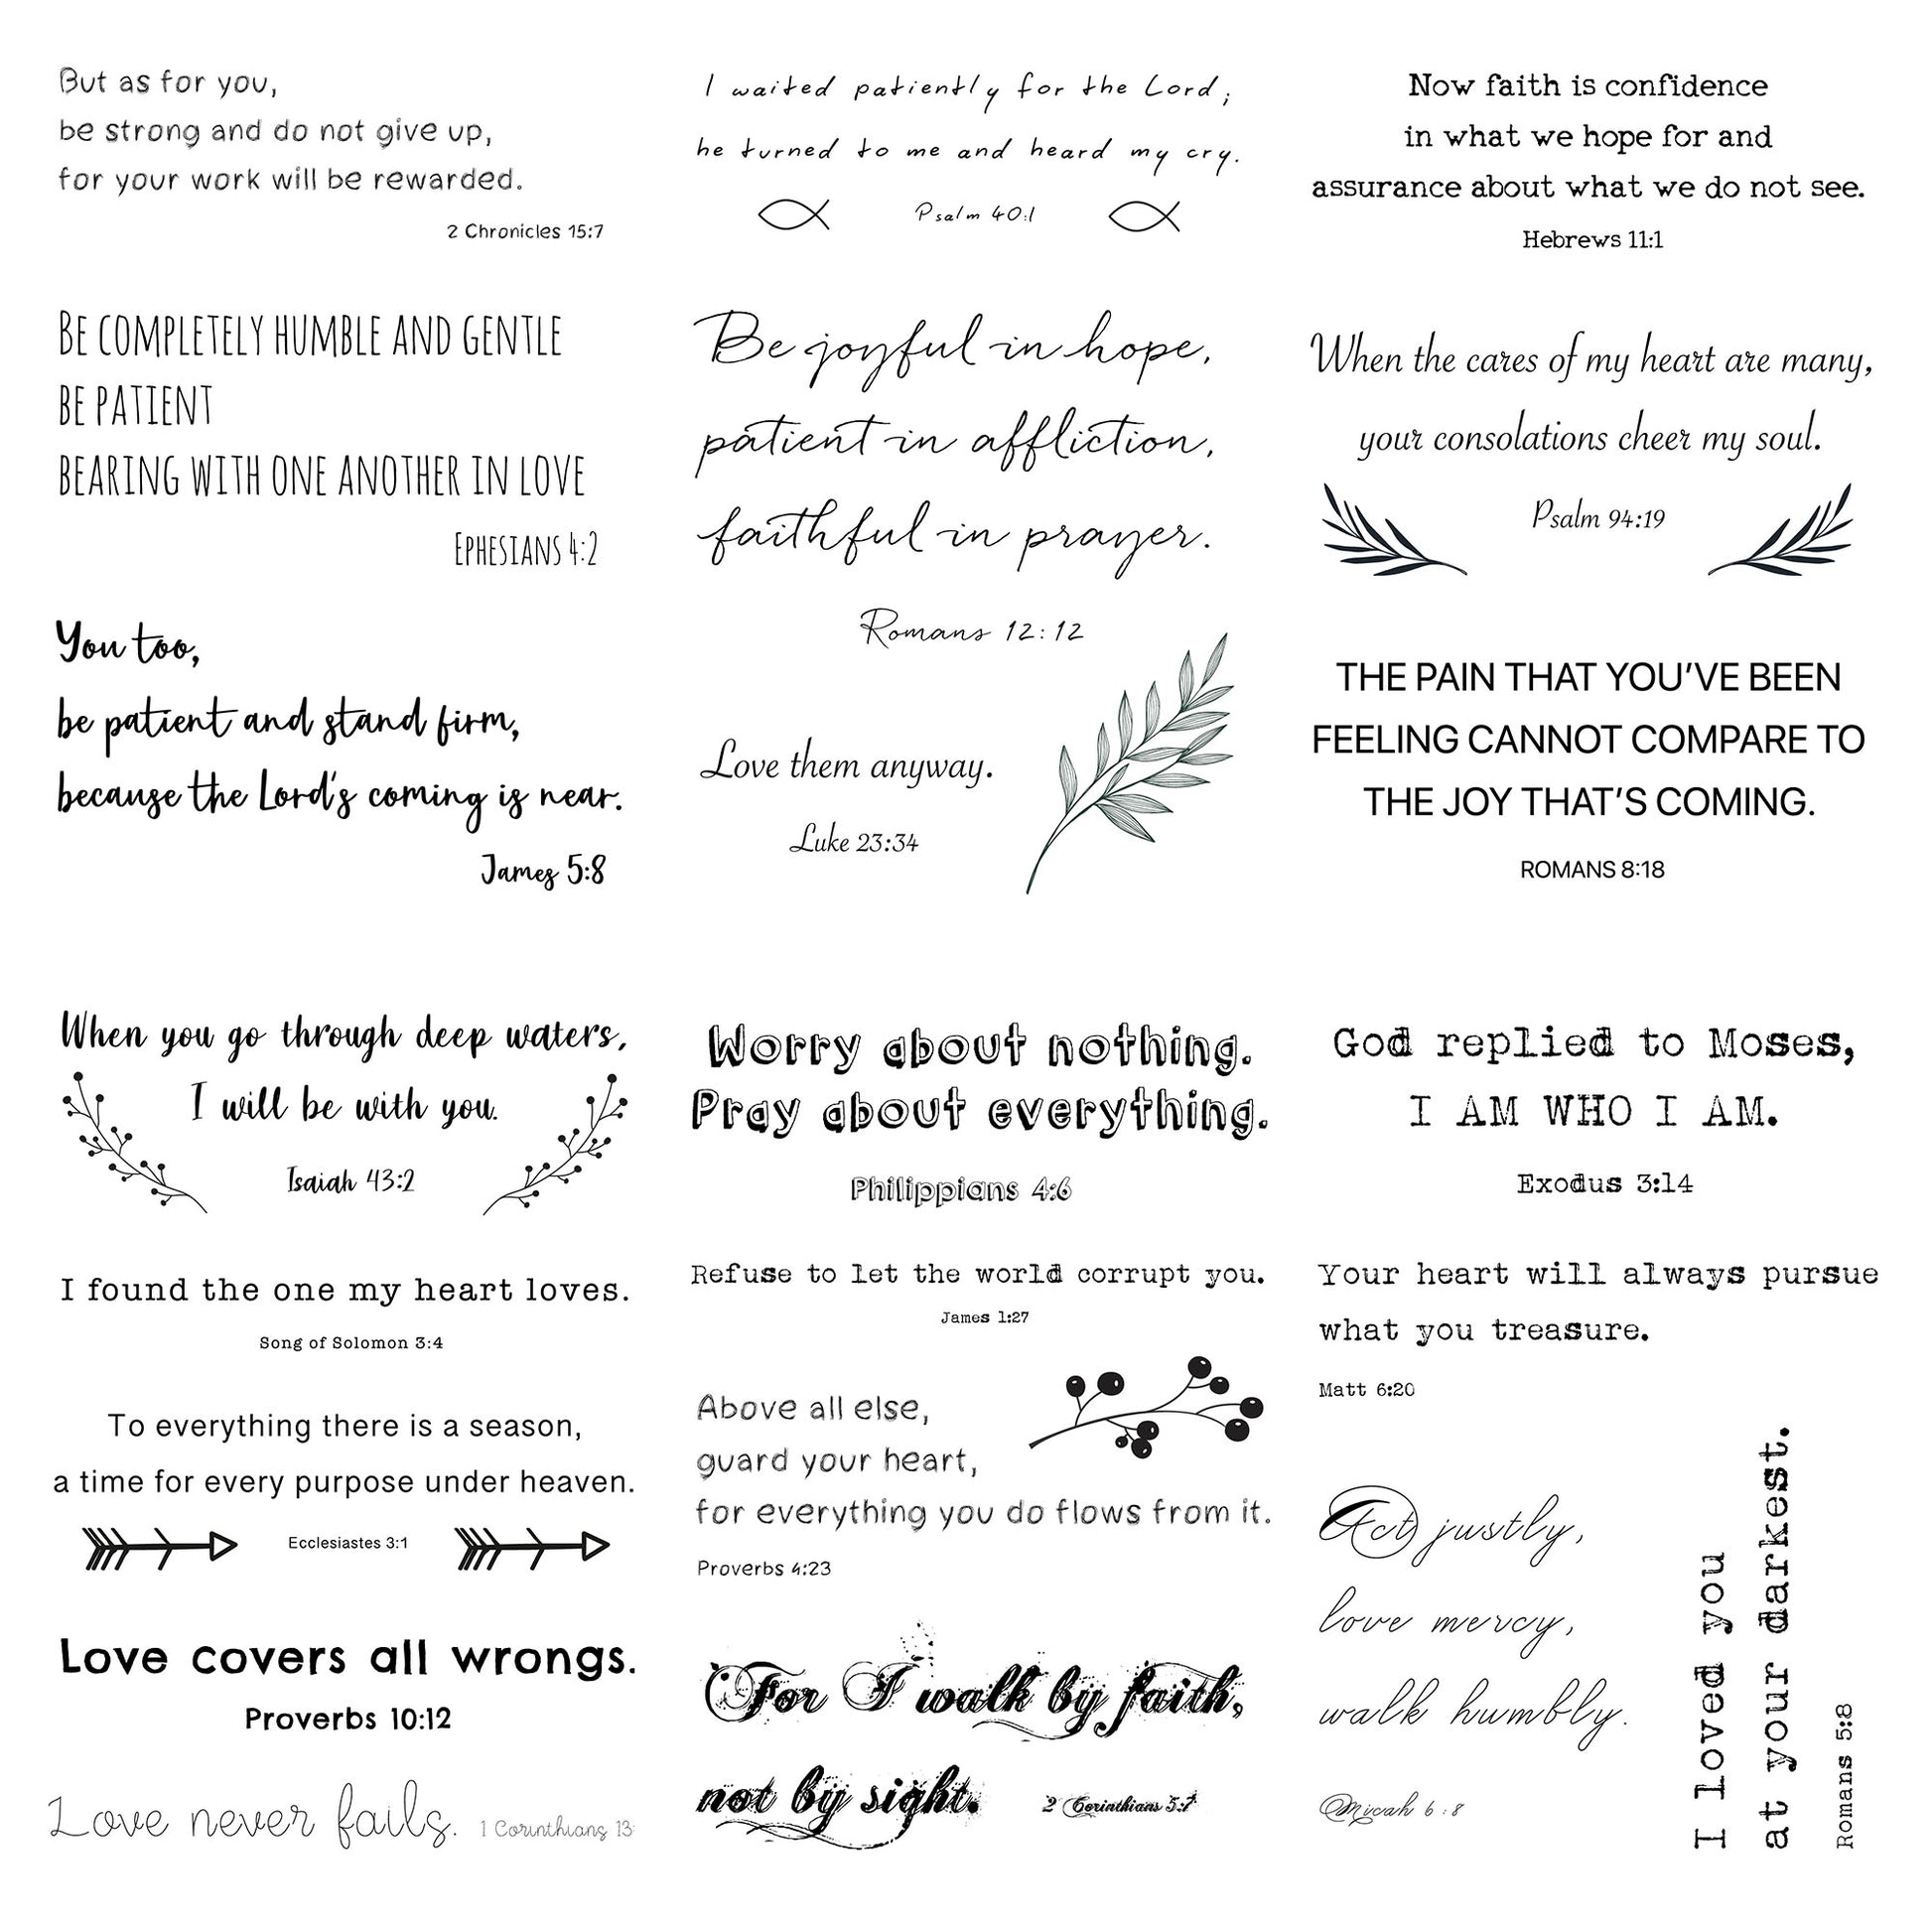 But as for you,
be strong and do not give up,
for your work will be rewarded.
2 Chronicles 15:7
I waited patiently for the Lord;
he turned to me and heard my cry.
Psalm 40:1
Now faith is confidence
in what we hope for and
assurance about what we do not see.
Hebrews 11:1
BE COMPLETELY HUMBLE AND GENTLE
BE PATIENT
BEARING WITH ONE ANOTHER IN LOVE
EPHESIANS 4:2
Be joyful in hope,
patient in affliction,
faithful in prayer.
Romans 12:12
When the cares of my heart are many,
your consolations cheer my soul.
Psalm 94:19
You too,
be patient and stand firm,
because the Lord's coming is near.
James 5:8
Love them anyway.
Luke 23:34
THE PAIN THAT YOU'VE BEEN
FEELING CANNOT COMPARE TO
THE JOY THAT'S COMING.
ROMANS 8:18
When you go through deep waters,
I will be with you.
Isaiah 43:2
Worry about nothing.
Pray about everything.
Philippians 4:6
God replied to Moses,
I AM WHO I AM.
Exodus 3:14
I found the one my heart loves.
Song of Solomon 3:4
Refuse to let the world corrupt you.
James 1:27
Your heart will always pursue
what you treasure.
Matt 6:20
To everything there is a season,
a time for every purpose under heaven.
Ecclesiastes 3:1
Above all else,
guard your heart,
for everything you do flows from it.
Proverbs 4:23
Act justly,
love mercy,
walk humbly.
Micah 6:8
I loved you
at your darkest.
Romans 5:8
Love covers all wrongs.
Proverbs 10:12
For I walk by faith,
not by sight.
2 Corinthians 5:7
Love never fails.
1 Corinthians 13